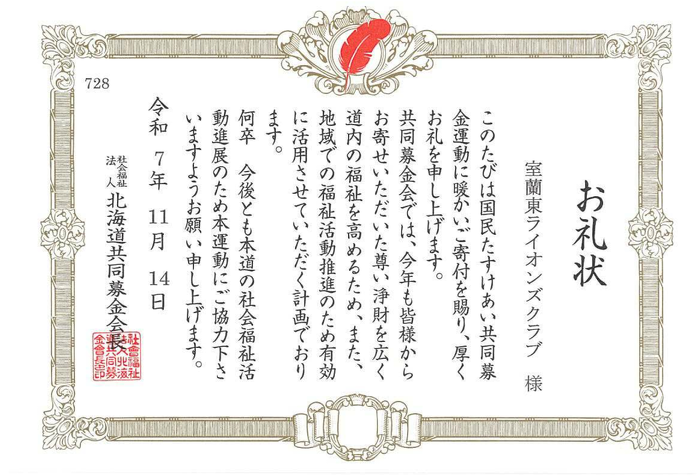 728
お礼状
室蘭東ライオンズクラブ 様
このたびは国民たすけあい共同募
金運動に暖かいご寄付を賜り、厚く
お礼を申し上げます。
共同募金会では、今年も皆様から
お寄せいただいた尊い浄財を広く
道内の福祉を高めるため、また、
地域での福祉活動推進のため有効
に活用させていただく計画でおり
ます。
何卒 今後とも本道の社会福祉活
動進展のため本運動にご協力下さ
いますようお願い申し上げます。
令和 7年 11月 14日
社会福祉
法人
北海道共同募金会長
社會福祉
法人北海
道共同募
金會長印